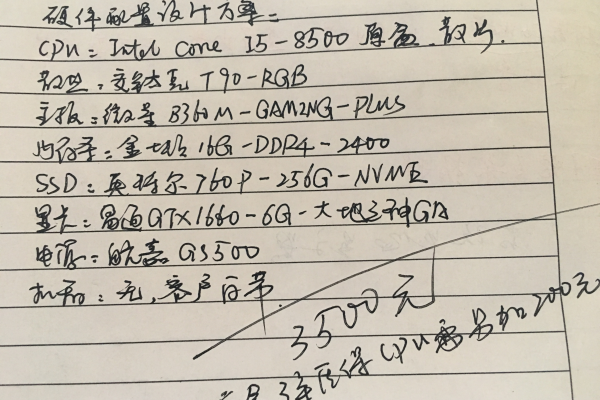 硬件配置设计方案：
CPU：Intel Core I5-8500 原盒.散片.
散热：安钛克 T90-RGB
主板：微星 B360M-GAMING-PLUS
内存条：金士顿 16G-DDR4-2400
SSD：英特尔 760P-256G-NVME
显卡：昌通GTX1660-6G-大地之神GA
电源：航嘉 GS500
机箱：无，客户自带.
3500元
CPU需另加200元